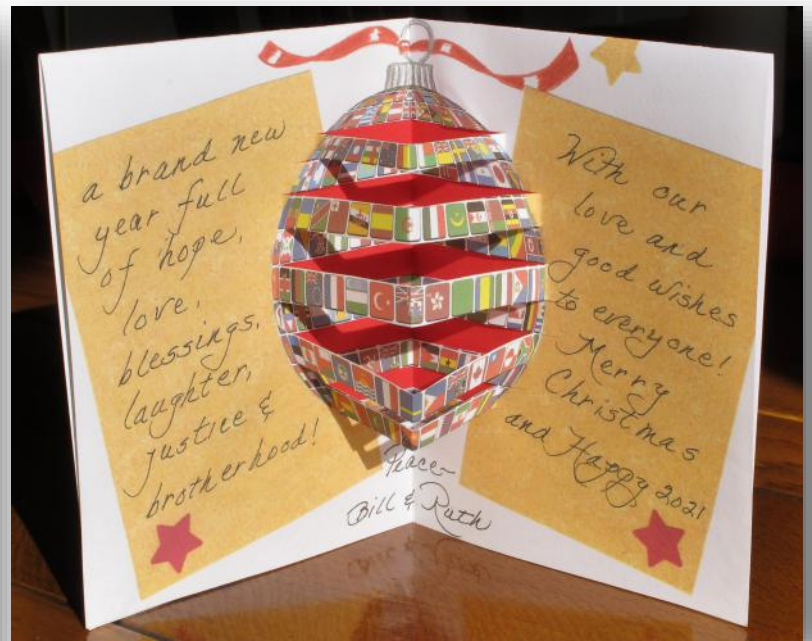 a brand new
year full
of hope,
love,
blessings,
laughter,
justice &
brotherhood!
With our
love and
good wishes
to everyone!
Merry
Christmas
and Happy 2021
Peace-
Bill & Ruth